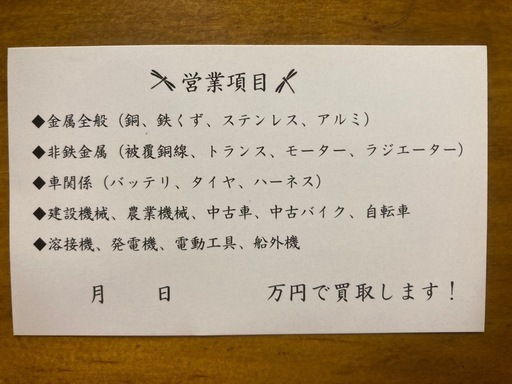 営業項目
◆金属全般（銅、鉄くず、ステンレス、アルミ）
◆非鉄金属（被覆銅線、トランス、モーター、ラジエーター）
◆車関係（バッテリ、タイヤ、ハーネス）
◆建設機械、農業機械、中古車、中古バイク、自転車
◆溶接機、発電機、電動工具、船外機
月　日　万円で買取します！